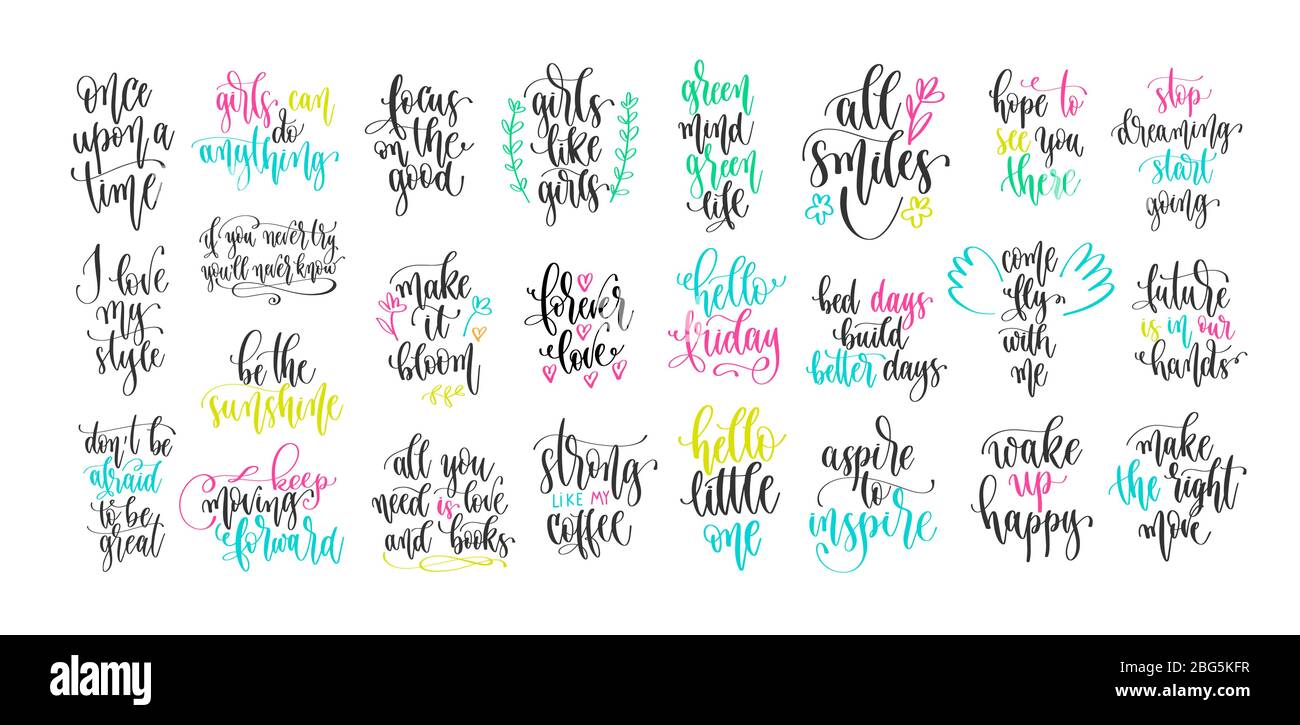 once
upon a
time
I love
my
style
don't be
afraid
to be
great
girls can
do
anything
if you never try
you'll never know
be the
sunshine
keep
moving
forward
focus
on the
good
make
it
bloom
all you
need is love
and books
girls
like
girls
forever
love
strong
LIKE MY
coffee
green
mind
green
life
hello
friday
hello
little
one
all
smiles
bed days
build
better days
aspire
to
inspire
hope to
see you
there
come
fly
with
me
wake
up
happy
stop
dreaming
start
going
future
is in our
hands
make
the right
move
alamy
Image ID: 2BG5KFR
www.alamy.com